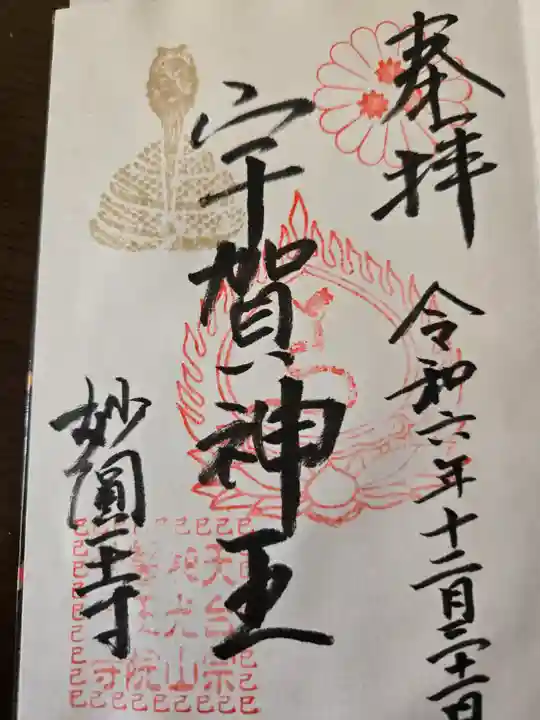 奉拝
令和六年十二月二十一日
宇賀神王
妙圓寺
天台宗
光山
院
寺